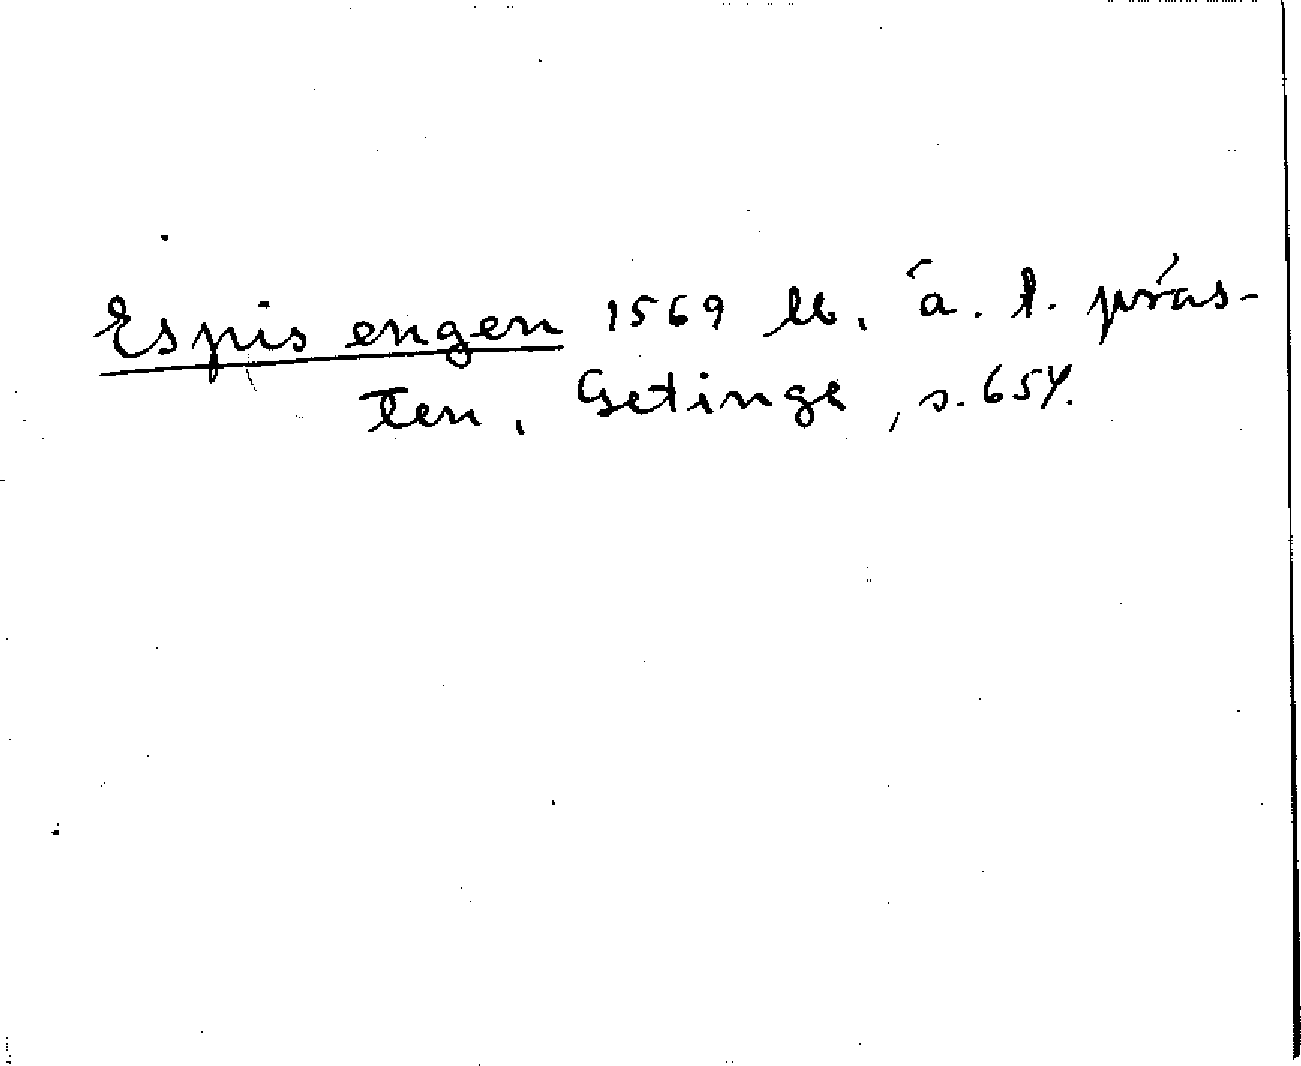 Espis engen 1569 lb. å. l. präs-
ten, Getinge, s. 654.